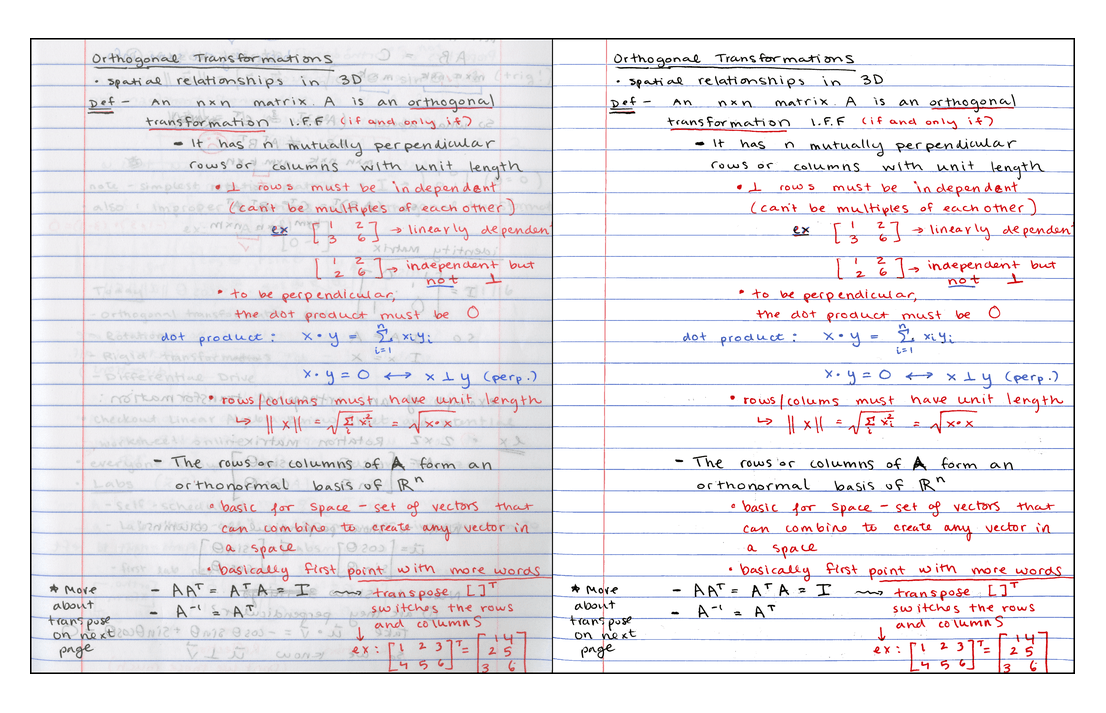 Orthogonal Transformations
• spatial relationships in 3D
Def - An n×n matrix A is an orthogonal
transformation I.F.F (if and only if)
- It has n mutually perpendicular
rows or columns with unit length
• ⊥ rows must be independent
(can't be multiples of each other)
ex [1 2 → linearly dependen
3 6]
[1 2 → independent but
2 6] not ⊥
• to be perpendicular,
the dot product must be 0
dot product: x·y = Σ_{i=1}^{n} xiyi
x·y = 0 ↔ x ⊥ y (perp.)
• rows/colums must have unit length
↳ ||x|| = √(Σ_i xi²) = √(x·x)
- The rows or columns of A form an
orthonormal basis of ℝⁿ
• basic for space - set of vectors that
can combine to create any vector in
a space
• basically first point with more words
* More
about
transpose
on next
page
- AAᵀ = AᵀA = I ⟿ transpose [ ]ᵀ
- A⁻¹ = Aᵀ switches the rows
and columns
↓
ex: [1 2 3 ]ᵀ = [1 4
4 5 6] 2 5
3 6]
Orthogonal Transformations
• spatial relationships in 3D
Def - An n×n matrix A is an orthogonal
transformation I.F.F (if and only if)
- It has n mutually perpendicular
rows or columns with unit length
• ⊥ rows must be independent
(can't be multiples of each other)
ex [1 2 → linearly dependen
3 6]
[1 2 → independent but
2 6] not ⊥
• to be perpendicular,
the dot product must be 0
dot product: x·y = Σ_{i=1}^{n} xiyi
x·y = 0 ↔ x ⊥ y (perp.)
• rows/colums must have unit length
↳ ||x|| = √(Σ_i xi²) = √(x·x)
- The rows or columns of A form an
orthonormal basis of ℝⁿ
• basic for space - set of vectors that
can combine to create any vector in
a space
• basically first point with more words
* More
about
transpose
on next
page
- AAᵀ = AᵀA = I ⟿ transpose [ ]ᵀ
- A⁻¹ = Aᵀ switches the rows
and columns
↓
ex: [1 2 3 ]ᵀ = [1 4
4 5 6] 2 5
3 6]